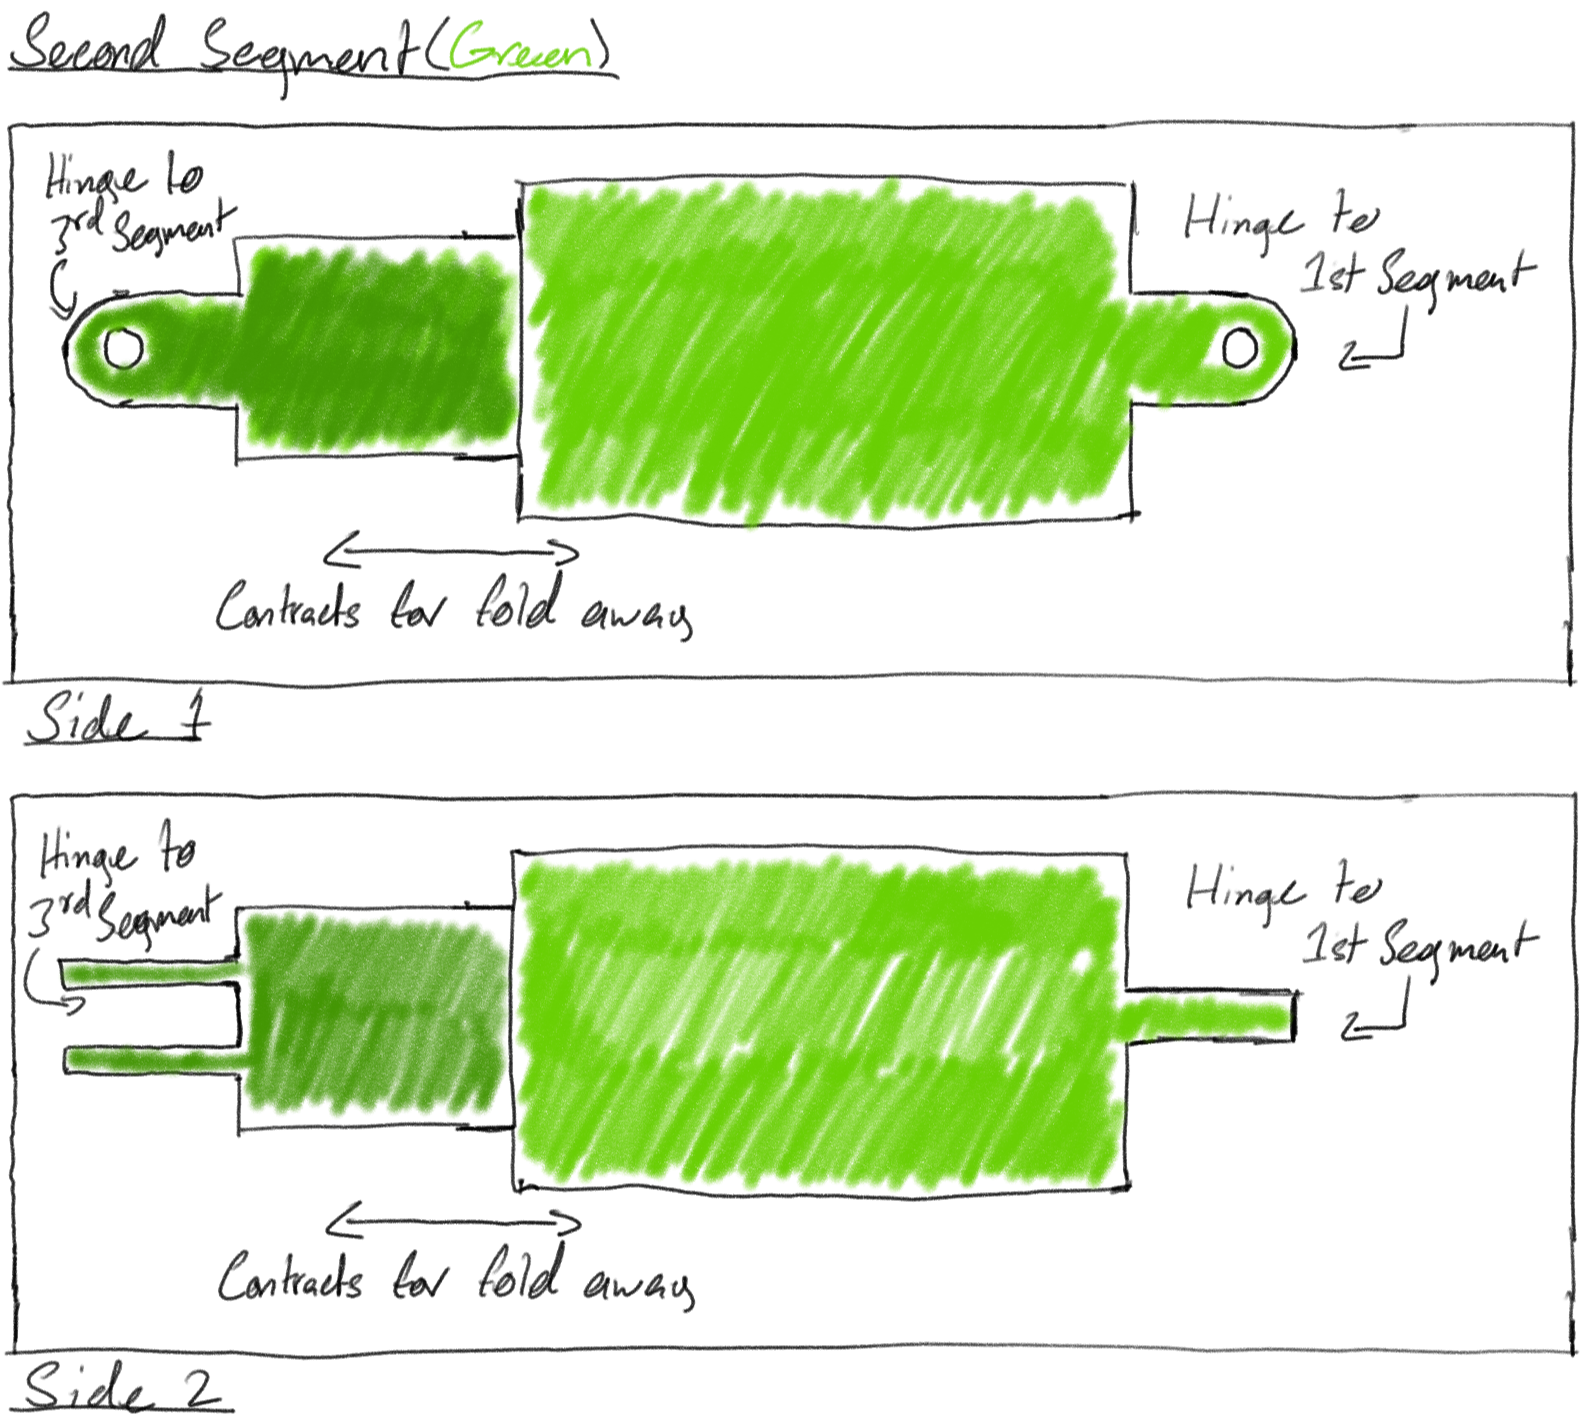 Second Segment (Green)
Hinge to
3rd Segment
Hinge to
1st Segment
Contracts for fold away
Side 1
Hinge to
3rd Segment
Hinge to
1st Segment
Contracts for fold away
Side 2